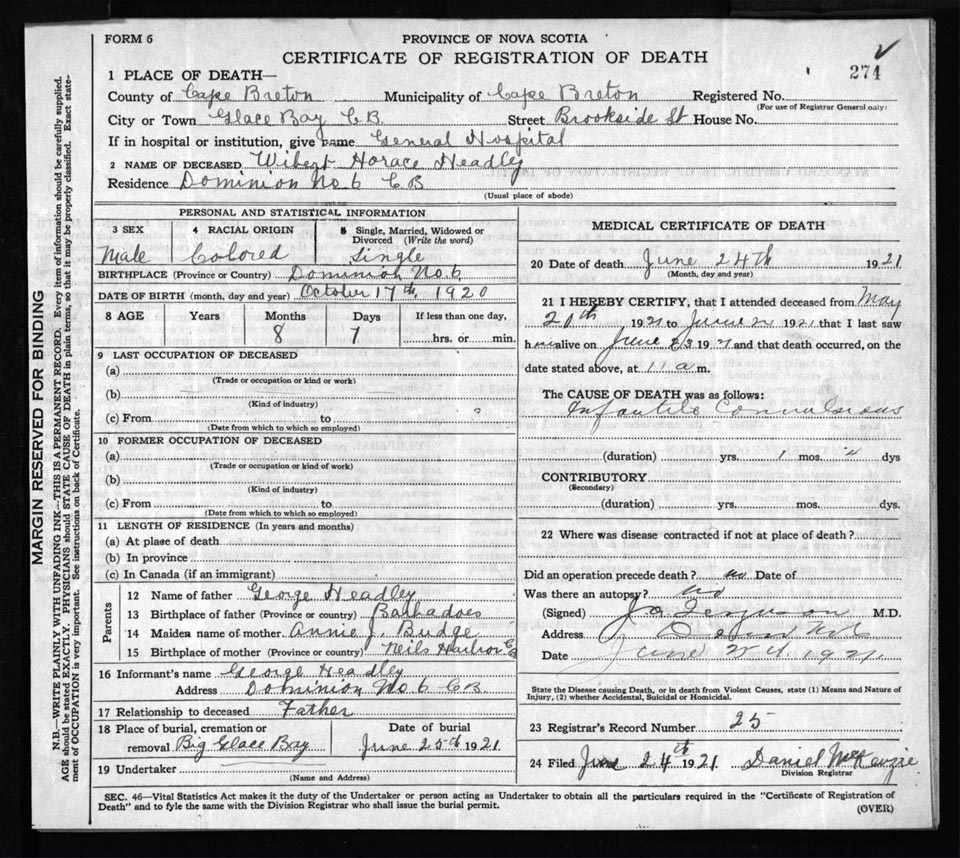 FORM 6
PROVINCE OF NOVA SCOTIA
CERTIFICATE OF REGISTRATION OF DEATH
274
1 PLACE OF DEATH—
County of Cape Breton Municipality of Cape Breton Registered No.
(For use of Registrar General only)
City or Town Glace Bay C.B. Street Brookside St House No.
If in hospital or institution, give name General Hospital
2 NAME OF DECEASED Wibert Horace Headley
Residence Dominion No. 6 C B
(Usual place of abode)
PERSONAL AND STATISTICAL INFORMATION
3 SEX 4 RACIAL ORIGIN 5 Single, Married, Widowed or Divorced (Write the word)
Male Colored Single
BIRTHPLACE (Province or Country) Dominion No. 6
DATE OF BIRTH (month, day and year) October 17th, 1920
8 AGE Years Months Days If less than one day,
8 7 hrs. or min.
9 LAST OCCUPATION OF DECEASED
(a)
(Trade or occupation or kind or work)
(b)
(Kind of industry)
(c) From to
(Date from which to which so employed)
10 FORMER OCCUPATION OF DECEASED
(a)
(Trade or occupation or kind of work)
(b)
(Kind of industry)
(c) From to
(Date from which to which so employed)
11 LENGTH OF RESIDENCE (In years and months)
(a) At place of death
(b) In province
(c) In Canada (if an immigrant)
Parents
12 Name of father George Headley
13 Birthplace of father (Province or country) Barbadoes
14 Maiden name of mother Annie J. Budge
15 Birthplace of mother (Province or country) Neils Harbor C B
16 Informant's name George Headley
Address Dominion No. 6 C B
17 Relationship to deceased Father
18 Place of burial, cremation or removal Big Glace Bay
Date of burial June 25th 1921
19 Undertaker
(Name and Address)
MEDICAL CERTIFICATE OF DEATH
20 Date of death June 24th 1921
(Month, day and year)
21 I HEREBY CERTIFY, that I attended deceased from May
20th 1921 to June 24 1921 that I last saw
him alive on June 23 1921 and that death occurred, on the
date stated above, at 11 a m.
The CAUSE OF DEATH was as follows:
Infantile Convulsions
(duration) yrs. 1 mos. 4 dys
CONTRIBUTORY
(Secondary)
(duration) yrs. mos. dys.
22 Where was disease contracted if not at place of death?
Did an operation precede death? no Date of
Was there an autopsy? no
(Signed) M.D.
Address
Date June 24. 1921.
State the Disease causing Death, or in death from Violent Causes, state (1) Means and Nature of
Injury, (2) whether Accidental, Suicidal or Homicidal.
23 Registrar's Record Number 25
24 Filed June 24th 1921 Daniel McKenzie
Division Registrar
SEC. 46—Vital Statistics Act makes it the duty of the Undertaker or person acting as Undertaker to obtain all the particulars required in the "Certificate of Registration of
Death" and to fyle the same with the Division Registrar who shall issue the burial permit.
(OVER)
MARGIN RESERVED FOR BINDING
N.B.—WRITE PLAINLY WITH UNFADING INK—THIS IS A PERMANENT RECORD. Every item of information should be carefully supplied.
AGE should be stated EXACTLY. PHYSICIANS should STATE CAUSE OF DEATH in plain terms, so that it may be properly classified. Exact state-
ment of OCCUPATION is very important. See instructions on back of Certificate.